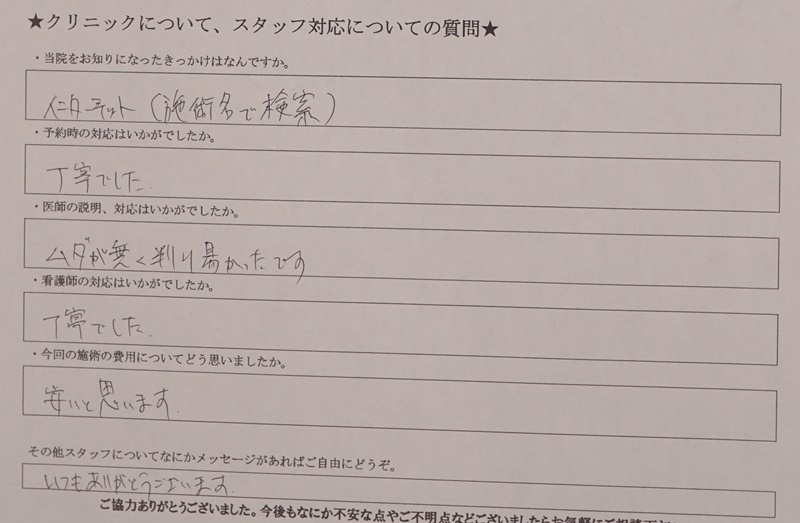 ★クリニックについて、スタッフ対応についての質問★
・当院をお知りになったきっかけはなんですか。
インターネット（施術名で検索）
・予約時の対応はいかがでしたか。
丁寧でした.
・医師の説明、対応はいかがでしたか。
ムダが無く判り易かったです
・看護師の対応はいかがでしたか。
丁寧でした.
・今回の施術の費用についてどう思いましたか。
安いと思います.
その他スタッフについてなにかメッセージがあればご自由にどうぞ。
いつもありがとうございます.
ご協力ありがとうございました。今後もなにか不安な点やご不明点などございましたらお気軽にご相談下さい